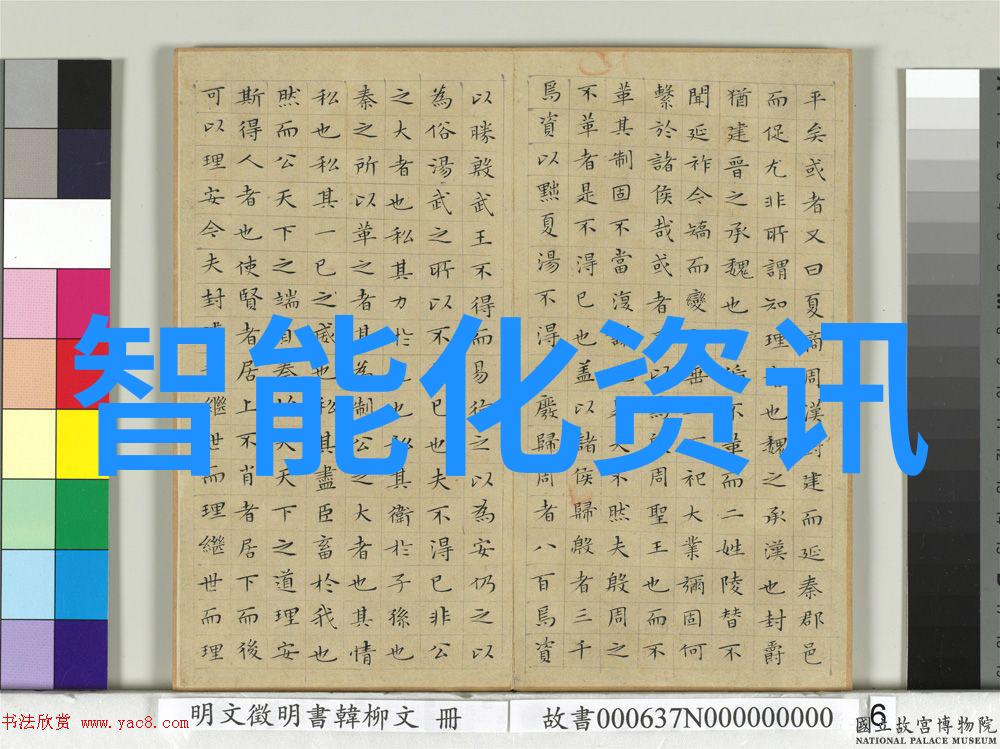 平矣或者又曰夏商周漢封建而延秦郡邑
而促尤非所謂知理也魏之承漢也封爵
猶建晉之承魏也循不革而二姓陵替不
聞延祚今矯而變垂祀大業彌固何
繫於諸侯哉或者以周聖王也而不
革其制固不當復大不然夫殷周之
不革者是不得已也蓋以諸侯歸殷者三千
焉資以黜夏湯不得廢歸周者八百焉資
以勝殷武王不得而易徇之以為安仍之以
為俗湯武之所以不已也夫不得已非公
之大者也私其力於也私其衛於子孫也
秦之所以革之者其為制公之大者也其情
私也私其一己之威也私其盡臣畜於我也
然而公天下之端自秦始天下之道理安
斯得人者也使賢者居上不肖者居下而後
可以理安今夫封繼世而理繼世而理
智能化资讯
明文徵明書韓柳文 冊
故書000637N000000000
6
书法欣赏 www.yac8.com
國立故宮博物院
NATIONAL PALACE MUSEUM